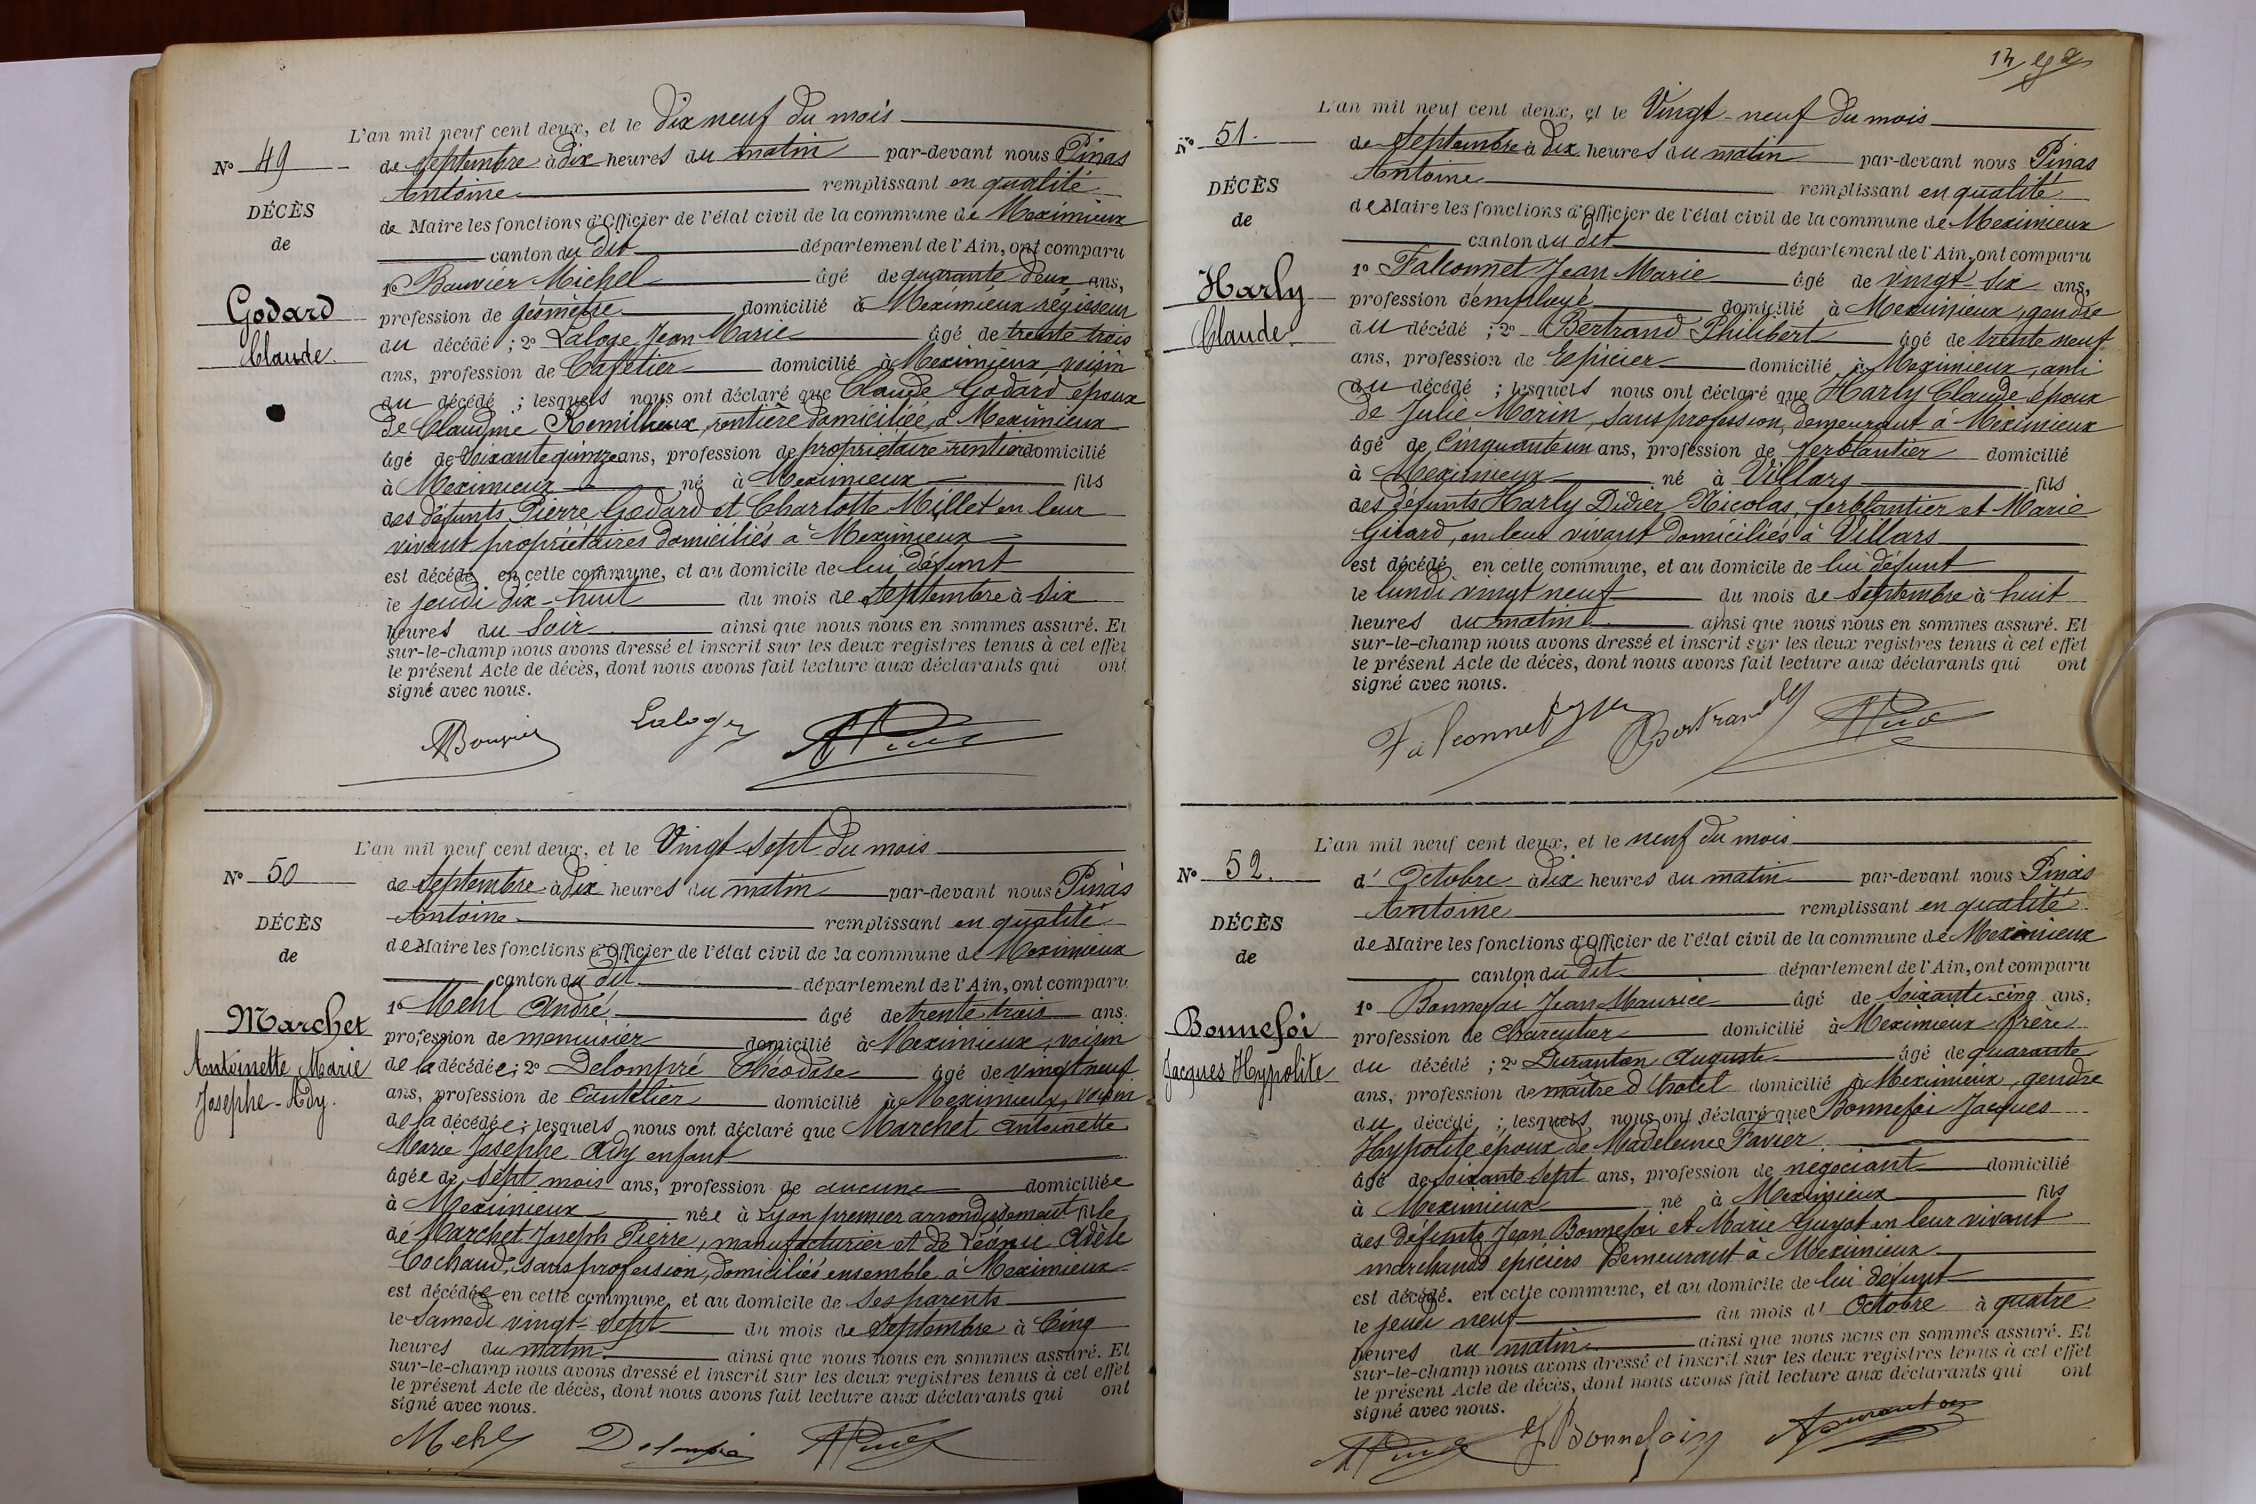 L'an mil neuf cent deux, et le dix neuf du mois
No 49
de septembre à dix heures du matin par-devant nous Pinas
Antoine remplissant en qualité
DÉCÈS
de Maire les fonctions d'Officier de l'état civil de la commune de Meximieux
de
canton du dit département de l'Ain, ont comparu
1o Bouvier Michel âgé de quarante deux ans,
Godard
Claude.
profession de géomètre domicilié à Meximieux régisseur
du décédé ; 2o Laloge Jean Marie âgé de trente trois
ans, profession de Cafetier domicilié à Meximieux, voisin
du décédé ; lesquels nous ont déclaré que Claude Godard époux
de Claudine Remillieux, rentière domiciliée à Meximieux
âgé de soixante quinze ans, profession de propriétaire rentier domicilié
à Meximieux né à Meximieux fils
des défunts Pierre Godard et Charlotte Millet en leur
vivant propriétaires domiciliés à Meximieux
est décédé en cette commune, et au domicile de lui défunt
le jeudi dix-huit du mois de septembre à six
heures du soir ainsi que nous nous en sommes assuré. Et
sur-le-champ nous avons dressé et inscrit sur les deux registres tenus à cet effet
le présent Acte de décès, dont nous avons fait lecture aux déclarants qui ont
signé avec nous.
MBouvier Laloge APinas
L'an mil neuf cent deux, et le Vingt-sept du mois
No 50
de septembre à dix heures du matin par-devant nous Pinas
Antoine remplissant en qualité
DÉCÈS
de Maire les fonctions d'Officier de l'état civil de la commune de Meximieux
de
canton du dit département de l'Ain, ont comparu
1o Mehl André âgé de trente trois ans.
Marchet
Antoinette Marie
Josephe-Ady.
profession de menuisier domicilié à Meximieux, voisin
de la décédée ; 2o Delompré Théodose âgé de vingt neuf
ans, profession de Coutelier domicilié à Meximieux, voisin
de la décédée ; lesquels nous ont déclaré que Marchet Antoinette
Marie Josephe Ady enfant
âgée de sept mois ans, profession de aucune domiciliée
à Meximieux née à Lyon premier arrondissement fille
de Marchet Joseph Pierre, manufacturier et de Léonie Adèle
Cochaud, sans profession, domiciliés ensemble à Meximieux
est décédée en cette commune, et au domicile de ses parents
le samedi vingt-sept du mois de septembre à Cinq
heures du matin ainsi que nous nous en sommes assuré. Et
sur-le-champ nous avons dressé et inscrit sur les deux registres tenus à cet effet
le présent Acte de décès, dont nous avons fait lecture aux déclarants qui ont
signé avec nous.
Mehl Delompré APinas
L'an mil neuf cent deux, et le Vingt-neuf du mois
No 51.
de Septembre à Dix heures du matin par-devant nous Pinas
Antoine remplissant en qualité
DÉCÈS
de Maire les fonctions d'Officier de l'état civil de la commune de Meximieux
de
canton du dit département de l'Ain, ont comparu
1o Falconnet Jean Marie âgé de vingt-six ans,
Harly
Claude.
profession d'employé domicilié à Meximieux, gendre
du décédé ; 2o Bertrand Philibert âgé de trente neuf
ans, profession de Epicier domicilié à Meximieux, ami
du décédé ; lesquels nous ont déclaré que Harly Claude époux
de Julie Morin, sans profession, demeurant à Meximieux
âgé de Cinquante un ans, profession de ferblantier domicilié
à Meximieux né à Villars fils
des défunts Harly Didier Nicolas, ferblantier et Marie
Girard, en leur vivant domiciliés à Villars
est décédé en cette commune, et au domicile de lui défunt
le lundi vingt neuf du mois de septembre à huit
heures du matin ainsi que nous nous en sommes assuré. Et
sur-le-champ nous avons dressé et inscrit sur les deux registres tenus à cet effet
le présent Acte de décès, dont nous avons fait lecture aux déclarants qui ont
signé avec nous.
Falconnet JM Bertrand APinas
L'an mil neuf cent deux, et le neuf du mois
No 52.
d' Octobre à dix heures du matin par-devant nous Pinas
Antoine remplissant en qualité
DÉCÈS
de Maire les fonctions d'Officier de l'état civil de la commune de Meximieux
de
canton du dit département de l'Ain, ont comparu
1o Bonnefoi Jean Maurice âgé de soixante-cinq ans,
Bonnefoi
Jacques Hypolite
profession de charcutier domicilié à Meximieux frère
du décédé ; 2o Duranton Auguste âgé de quarante
ans, profession de maître d'hotel domicilié à Meximieux, gendre
du décédé ; lesquels nous ont déclaré que Bonnefoi Jacques
Hypolite époux de Madeleine Favier
âgé de soixante sept ans, profession de négociant domicilié
à Meximieux né à Meximieux fils
des défunts Jean Bonnefoi et Marie Guyot en leur vivant
marchands épiciers demeurant à Meximieux
est décédé. en cette commune, et au domicile de lui défunt
le jeudi neuf du mois d' Octobre à quatre
heures du matin ainsi que nous nous en sommes assuré. Et
sur-le-champ nous avons dressé et inscrit sur les deux registres tenus à cet effet
le présent Acte de décès, dont nous avons fait lecture aux déclarants qui ont
signé avec nous.
APinas Bonnefoi ADuranton